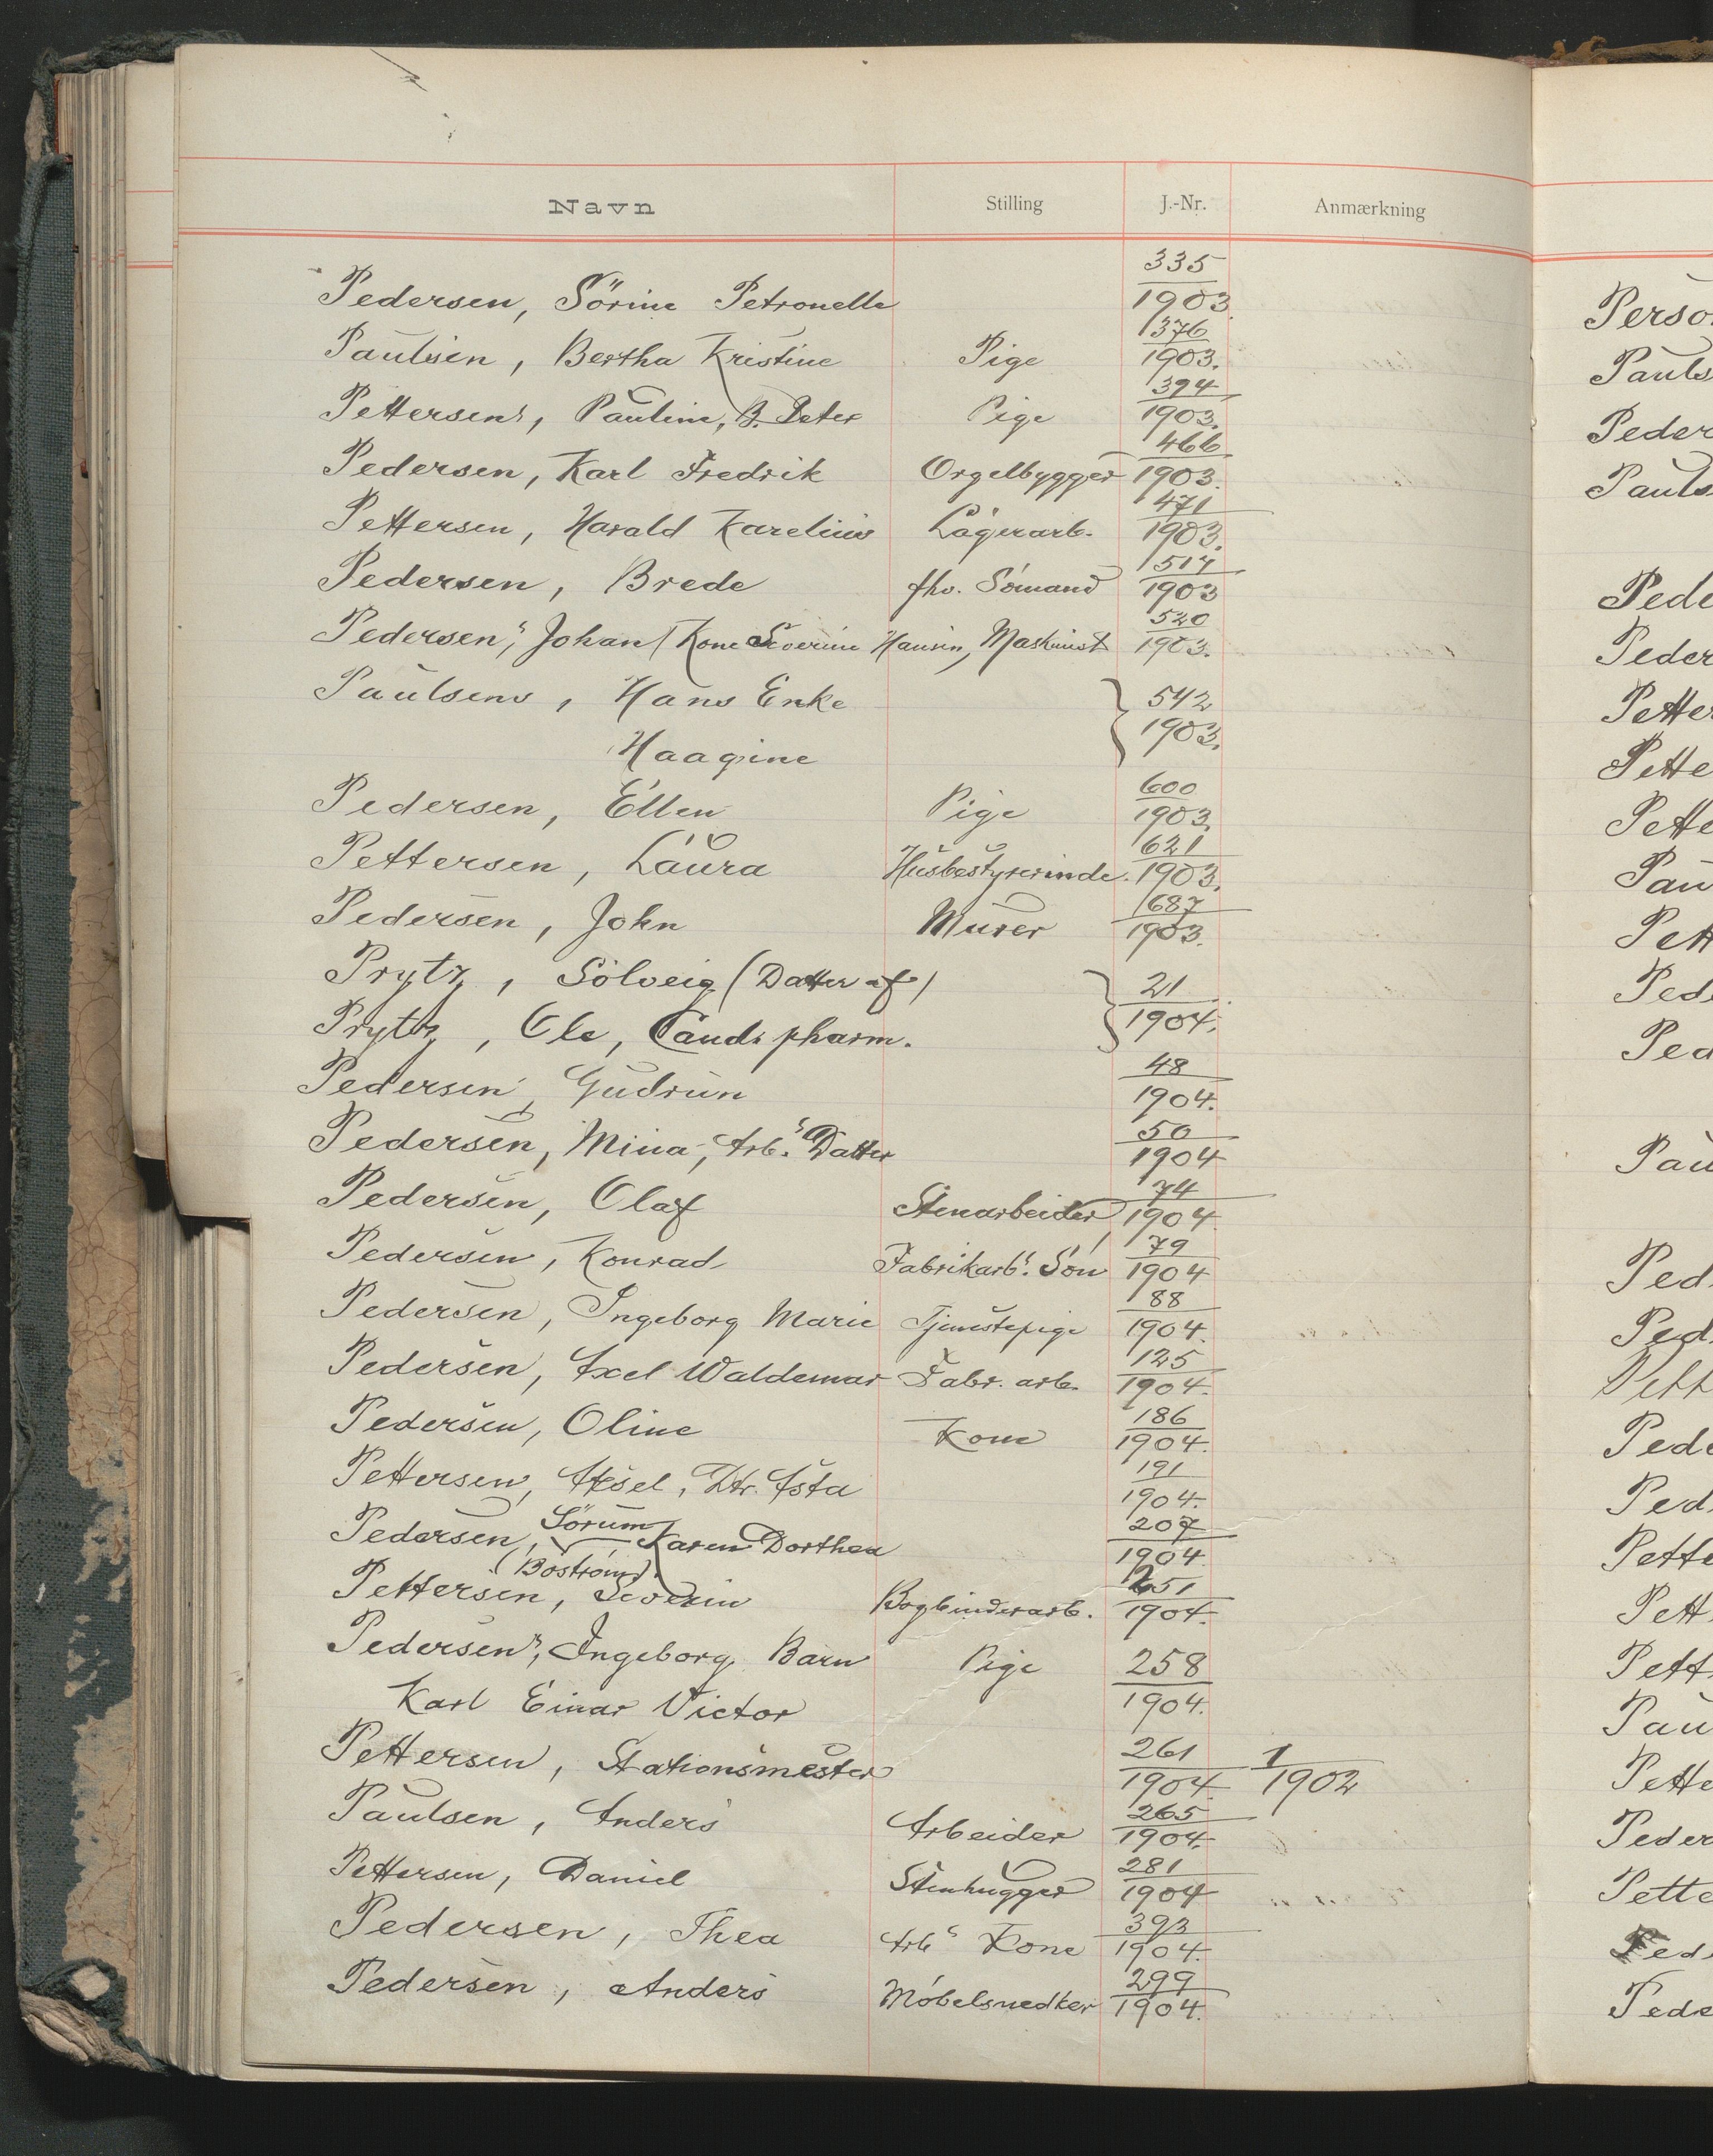 Navn Stilling J.-Nr. Anmærkning
Pedersen, Sörine Petronelle 335/1903
Paulsen, Bertha Kristine Pige 376/1903.
Pettersens, Pauline, B. Peter Pige 394/1903.
Pedersen, Karl Fredrik Orgelbygger 466/1903.
Pettersen, Harald Karelius Lagerarb. 471/1903.
Pedersen, Brede fhv. Sömand 517/1903
Pedersens, Johan (Kone Severine Hansen, Maskinist 520/1903.
Paulsens, Hans Enke 542/1903.
Haagine
Pedersen, Ellen Pige 600/1903
Pettersen, Laura Husbestyrerinde. 621/1903.
Pedersen, John Murer 687/1903.
Prytz, Sölveig (Datter af) 21/1904.
Prytz, Ole, Cand. pharm.
Pedersen, Gudrun 48/1904.
Pedersen, Mina, Arb.s Datter 50/1904
Pedersen, Olaf Stenarbeider 74/1904
Pedersen, Konrad Fabrikarb.s Sön 79/1904
Pedersen, Ingeborg Marie Tjenestepige 88/1904.
Pedersen, Axel Waldemar Fabr. arb. 125/1904.
Pedersen, Oline Kone 186/1904.
Pettersen, Aksel, Dtr. Asta 191/1904.
Sörum
Pedersen, Karen Dorthea 207/1904
(Boström)
Pettersen, Severin Bogbinderarb. 251/1904.
Pedersens, Ingeborg Barn Pige 258/1904.
Karl Einar Victor
Pettersen, Stationsmester 261/1904 1/1902
Paulsen, Anders Arbeider 265/1904.
Pettersen, Daniel Stenhugger 281/1904
Pedersen, Thea Arbs Kone 393/1904.
Pedersen, Anders Möbelsnedker 299/1904.
Perso
Pauls
Peder
Pauls
Pede
Peder
Petter
Pette
Pette
Pau
Pett
Ped
Ped
Pau
Ped
Ped
Pett
Pede
Ped
Pette
Pett
Pett
Pau
Pette
Peder
Pette
Ped
Pede